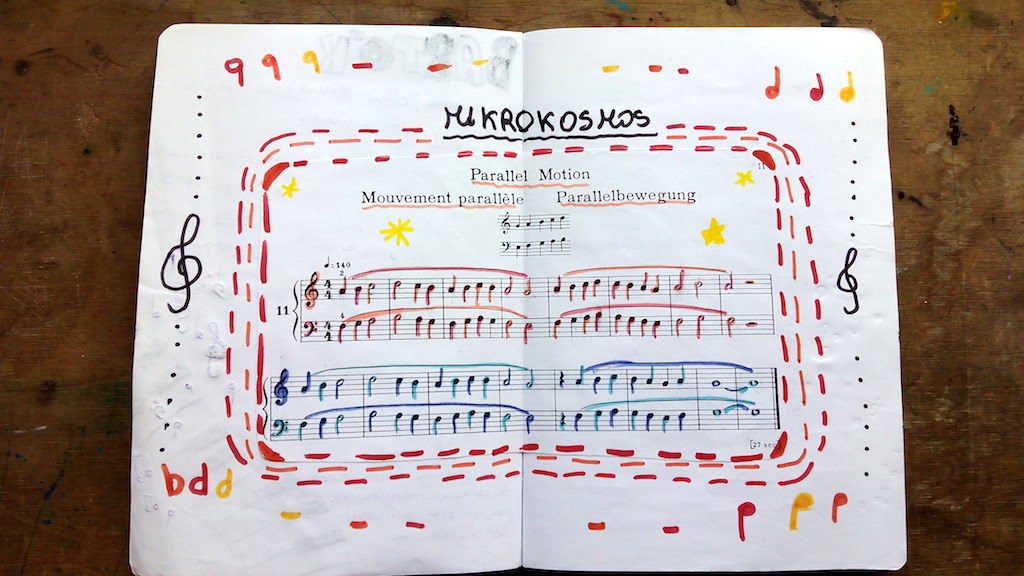 MIKROKOSMOS
11
Parallel Motion
Mouvement parallèle Parallelbewegung
♩=140
2
11
4
4
4
4
4
[27 sec.]